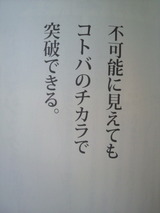 不可能に見えても
コトバのチカラで
突破できる。